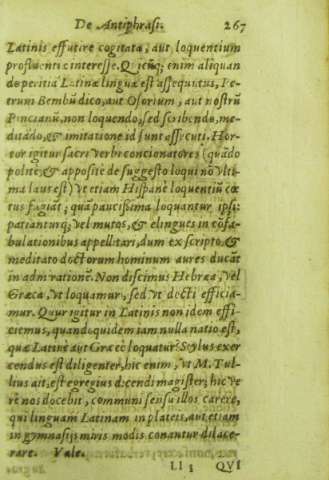 De Antiphrasi. 267
Latinis effutire cogitata, aut loquentium
profluentiæ interesse. Quicũq; enim aliquam
de peritia Latinæ linguæ est assequutus, Pe-
trum Bembũ dico, aut Osorium, aut nostrũ
Pincianũ, non loquendo, sed scribendo, me-
ditãdo, & imitatione id sunt assecuti. Hor-
tor igitur sacri verbi concionatores (quãdo
politè, & appositè de suggesto loqui nõ vlti-
ma laus est) vt etiam Hispanè loquentiũ cœ
tus fugiãt; quã paucissima loquantur ipsi:
patianturq; vel mutos, & elingues in cõfa-
bulationibus appellitari, dum ex scripto, &
meditato doctorum hominum aures ducãt
in admirationẽ. Non discimus Hebræa, vel
Græca, vt loquamur, sed vt docti efficia-
mur. Qur igitur in Latinis non idem effi-
ciemus, quandoquidem iam nulla natio est,
quæ Latinè aut Græcè loquatur? Stylus exer
cendus est diligenter, hic enim, vt M. Tul-
lius ait, est egregius dicendi magister; hic ve
rè nos docebit, communi sensu illos carere,
qui linguam Latinam in plateis, aut etiam
in gymnasijs miris modis conantur dilace-
rare. Vale.
Ll 3 QVI